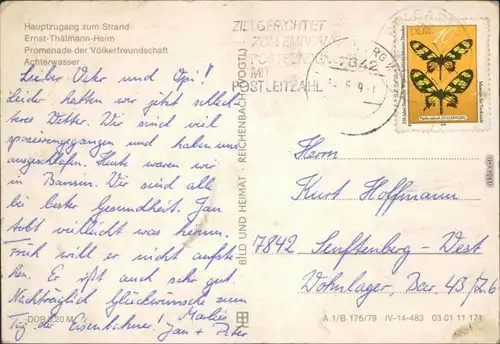 Hauptzugang zum Strand
Ernst-Thälmann-Heim
Promenade der Völkerfreundschaft
Achterwasser
Lieber Vater und Opi!
Leider hatten wir jetzt schlech-
teres Wetter. Wir sind viel
spazierengegangen und haben uns
ausgeschlafen. Heute waren wir
in Bansin. Wir sind alle
bei bester Gesundheit. Jan
tobt vielleicht was herum.
Früh will er nicht aufste-
hen. E ißt auch sehr gut.
Nachträglich Glückwünsche zum
Tag der Eisenbahner!
Jan + Peter
DDR 0,20 M
BILD UND HEIMAT · REICHENBACH (VOGTL)
ZIELGERICHTET
ZUM EMPFÄNGER
POSTSENDUNGEN
MIT
POSTLEITZAHL
DDR 10
Herrn
Kurt Hoffmann
7842 Senftenberg - West
Wohnlager, Bar 43/Z6
A 1/B 176/79 IV-14-483 03 01 11 171